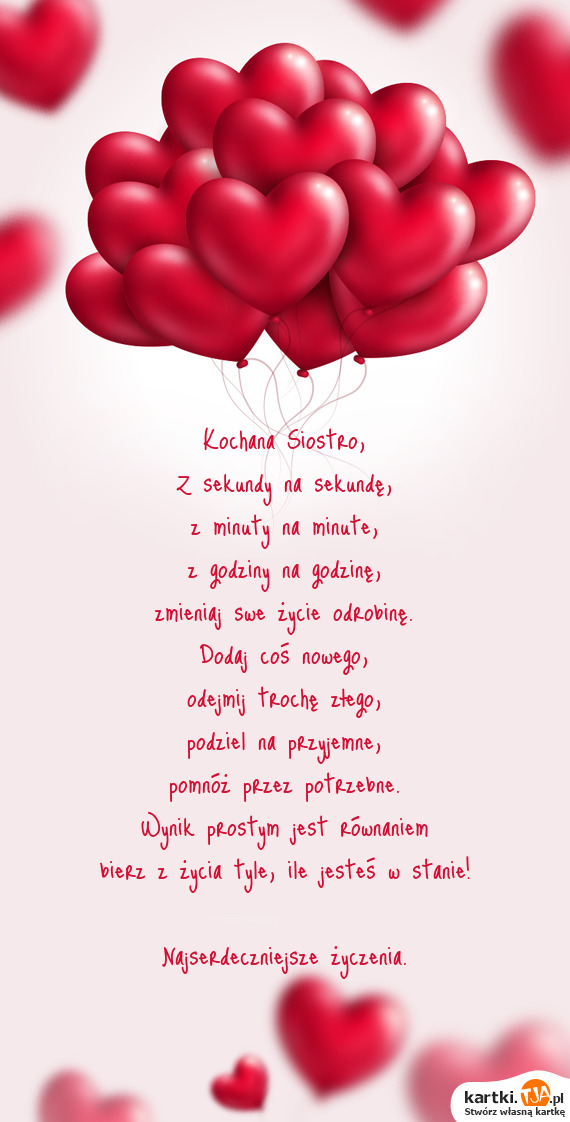 Kochana Siostro,
Z sekundy na sekundę,
z minuty na minute,
z godziny na godzinę,
zmieniaj swe życie odrobinę.
Dodaj coś nowego,
odejmij trochę złego,
podziel na przyjemne,
pomnóż przez potrzebne.
Wynik prostym jest równaniem
bierz z życia tyle, ile jesteś w stanie!
Najserdeczniejsze życzenia.
kartki.TJA.pl
Stwórz własną kartkę